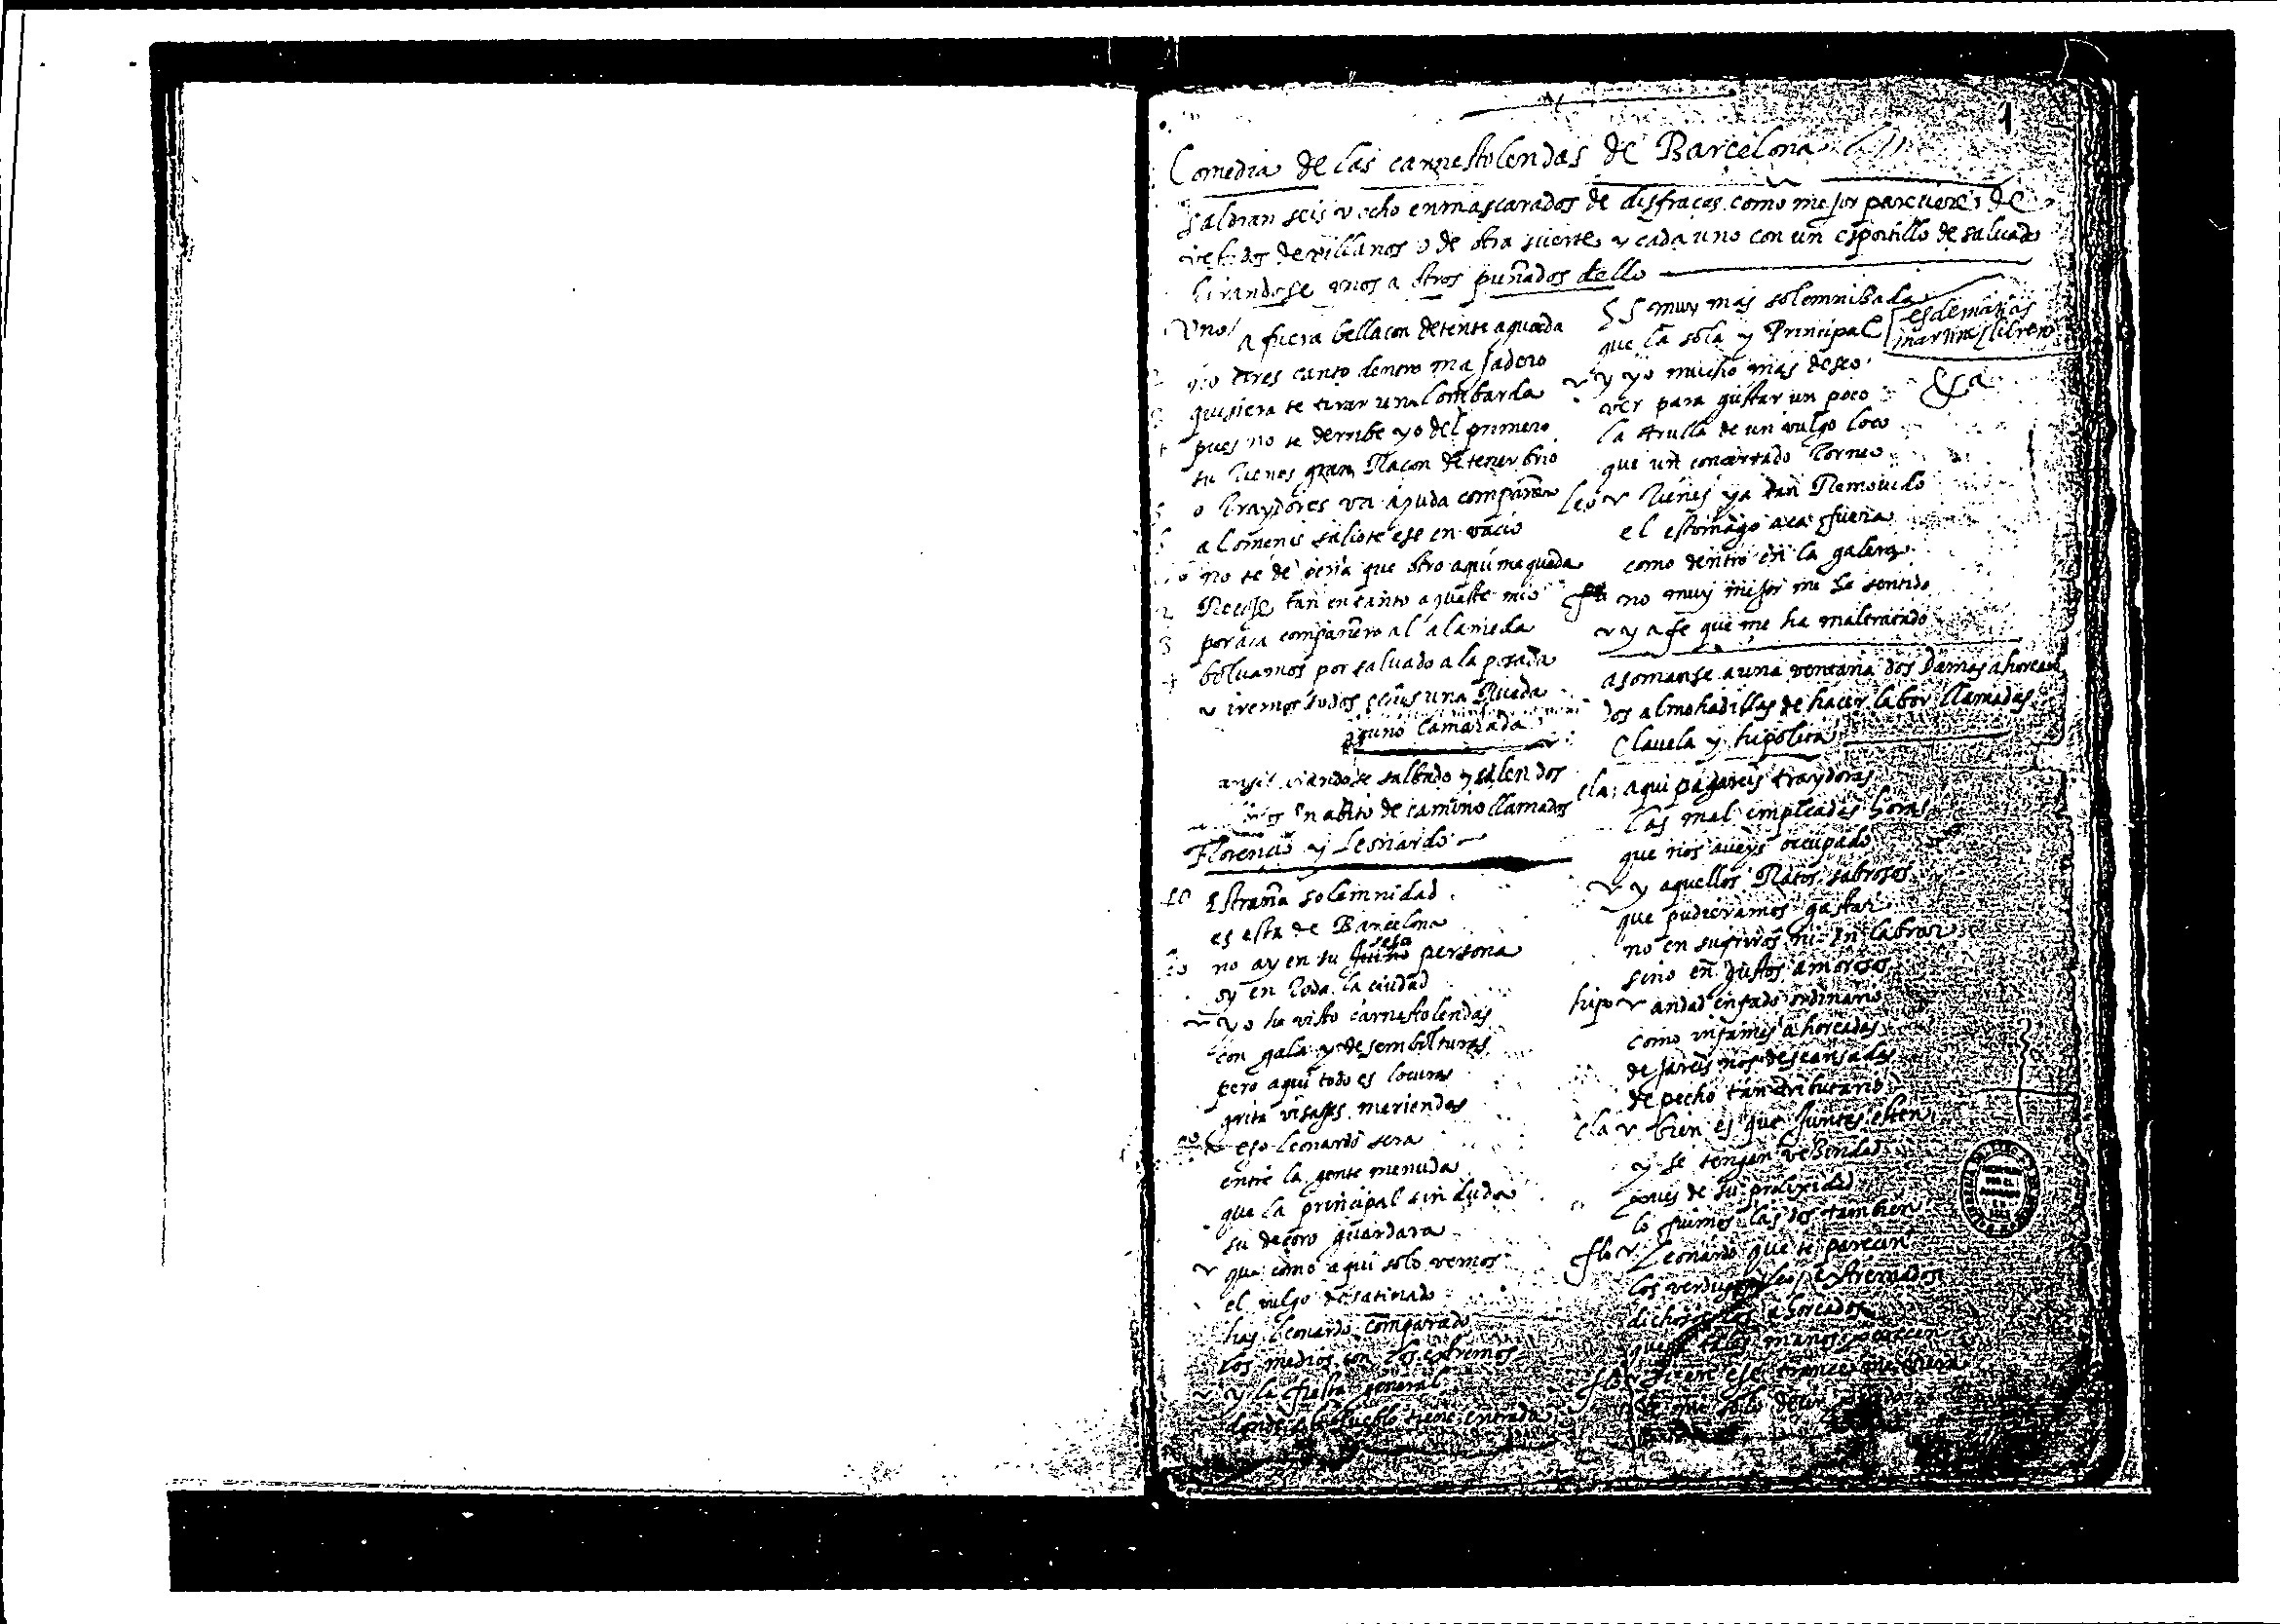 1
Comedia de las carnestolendas de Barcelona
Saldran seis v ocho enmascarados de disfraças como mejor pareciere de
vestidos de villanos o de otra suerte y cada uno con un esportillo de saluado
tirandose unos a otros puñados dello
Uno/ a fuera bellacon detente aguarda
2 no tires canto dentro majadero
3 quisiera te tirar una lombarda
4 pues no te derribe yo del primero
tu tienes gran Raçon de tener brio
5 o traydores va ayuda compañero
6 a lo menos saliote ese en vacio
no se de pena que otro aqui me queda
2 Recoje tan en tanto aqueste mio
3 por aca compañero al alameda
4 boluamos por saluado a la posada
y iremos todos seis una Rueda
camarada
tirandose salbado y salen dos
en abito de camino llamados
Florencio y Leonardo
Leo Estraña solemnidad
es esta de Barcelona
Flo no ay en su juicio seso persona
oy en toda la ciudad
yo he visto carnestolendas
con gala y desembolturas
pero aqui todo es locuras
grita visajes meriendas
Flo eso Leonardo sera
entre la gente menuda
que la principal sin duda
su decoro guardara
que como aqui solo vemos
el vulgo desatinado
has Leonardo comparado
los medios con los estremos
y la fiesta general
donde el pueblo tiene entrada
Es muy mas solemniçada
que la sola y Principal
es de matias martinez librero
y yo mucho mas deseo
ver para gustar un poco
la trulla de un vulgo loco
que un concertado torneo
Leo tienes ya tan Remouido
el estomago aca fuera
como dentro en la galera
Flo no muy mejor me he sentido
y a fe que me ha maltratado
asomanse a una ventana dos Damas ahorcando
dos almohadillas de hacer labor llamadas
Clauela y hipolita
cla: aqui pagareis traydoras
las mal empleadas horas
que nos aueys occupado
y aquellos Ratos sabrosos
que pudieramos gastar
no en suspiros ni en labrar
sino en gustos amorosos
hipo andad enfado ordinario
como infames ahorcadas
dejareis nos descansadas
de pecho tan tributario
cla bien es que juntas esten
y se tengan vezindad
pues de su prolixidad
lo fuimos las dos tambien
flo Leonardo que te parecen
los verdugos leo estremados
dichosos los ahorcados
que a tales manos perecen
flo si en ese trance me viera